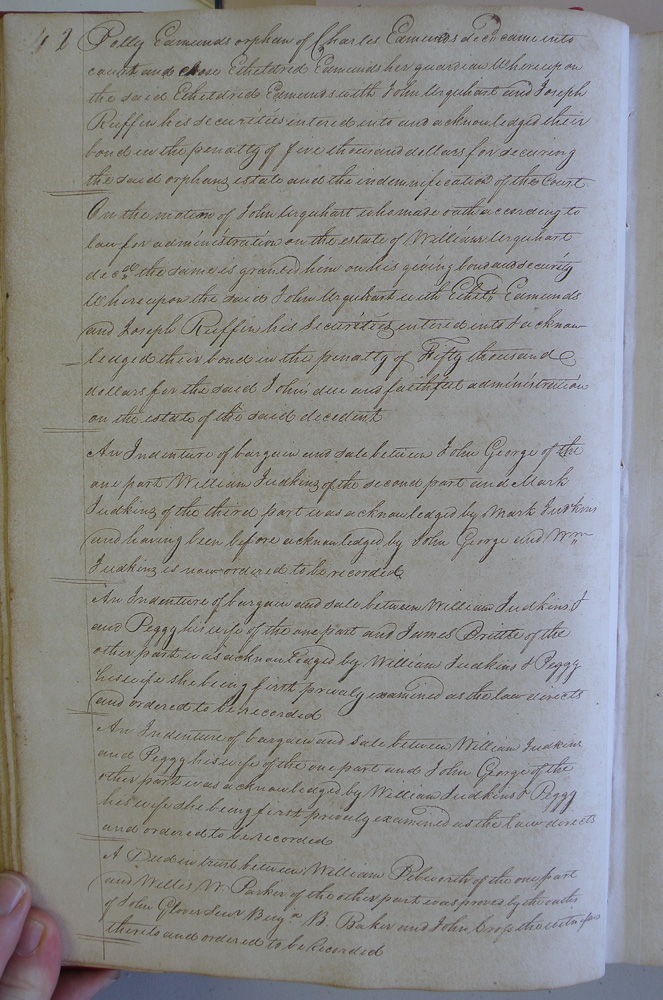 42 Polly Edmunds orphan of Charles Edmunds decd came into
court and chose Etheldred Edmunds her guardian Whereupon
the said Etheldred Edmunds with John Urquhart and Joseph
Ruffin his securities entered into and acknowledged their
bond in the penalty of five thousand dollars for securing
the said orphans estate and the indemnification of the Court
On the motion of John Urquhart who made oath according to
law for administration on the estate of William Urquhart
decd. the same is granted him on his giving bond and security
Whereupon the said John Urquhart with Etheld Edmunds
and Joseph Ruffin his Securities entered into & acknow-
ledged their bond in the penalty of Fifty thousand
dollars for the said John's due and faithful administration
on the estate of the said decedent
An Indenture of bargain and sale between John George of the
one part William Judkins of the second part and Mark
Judkins of the third part was acknowledged by Mark Judkins
and having been before acknowledged by John George and Wm
Judkins is now ordered to be recorded
An Indenture of bargain and sale between William Judkins
and Peggy his wife of the one part and James Brittle of the
other part was acknowledged by William Judkins & Peggy
his wife she being first privily examined as the law directs
and ordered to be recorded
An Indenture of bargain and sale between William Judkins
and Peggy his wife of the one part and John George of the
other part was acknowledged by William Judkins & Peggy
his wife she being first privily examined as the law directs
and ordered to be recorded
A Deed in trust between William Pebworth of the one part
and Willis W. Parker of the other part was proved by the oaths
of John Glover Senr Benjn B. Baker and John Crop the witnesses
thereto and ordered to be Recorded